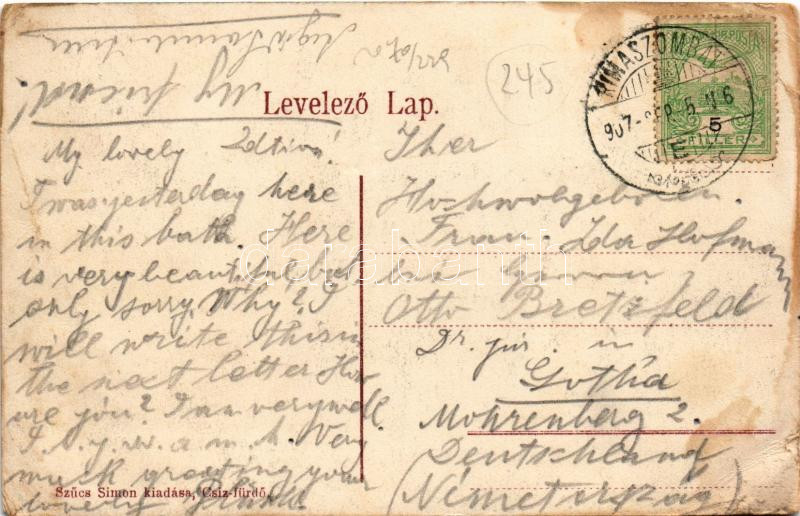 245
Levelező Lap.
RIMASZOMBAT
907
5
FILLÉR
My lovely
I was yesterday here
in this bath. Here
is very beautiful but
only sorry. Why? I
will write this in
the next letter How
are you? I am very well.
I. l. y. w. a. m. h. Very
much greeting your
lovely
Ihrer
Hochwolgeboren
Frau Ida Hofmann
bei Herrn
Otto Bretzfeld
Dr. jur. in
Gotha
Mohrenberg 2.
Deutschland
(Németország)
Szűcs Simon kiadása, Csiz-fürdő.
darabanth